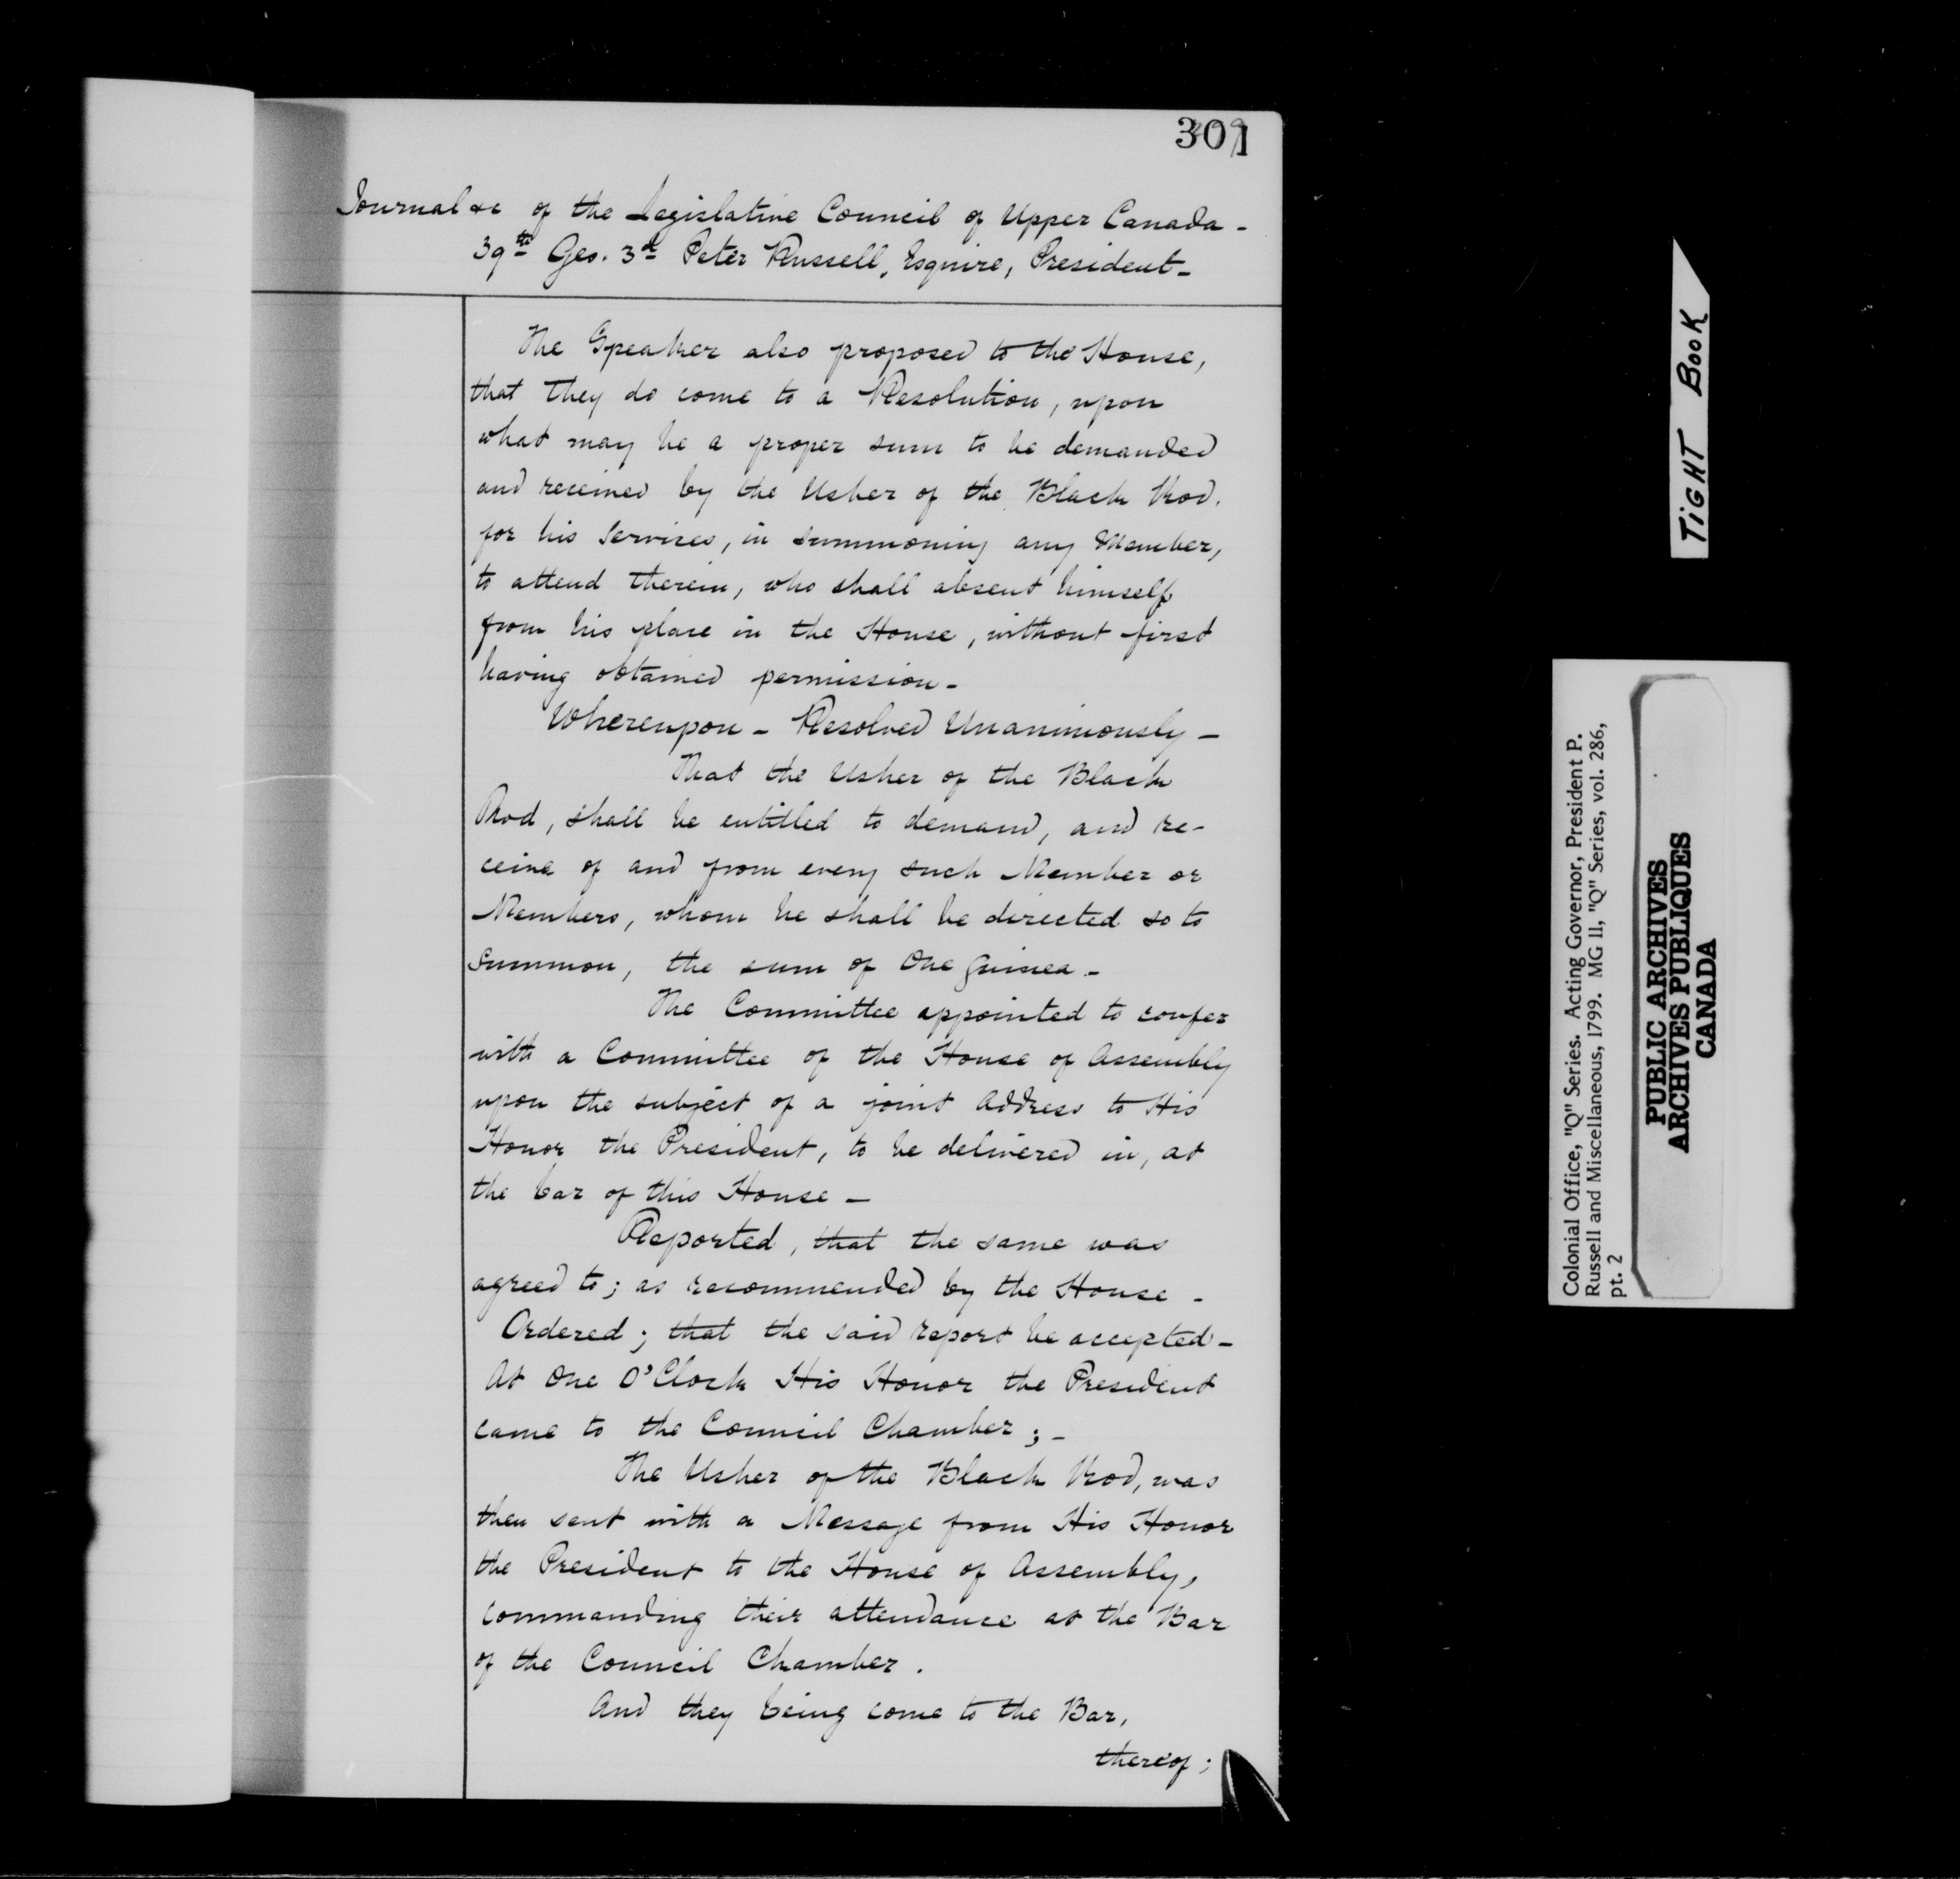 301
Journal &c of the Legislative Council of Upper Canada -
39th Geo. 3d Peter Russell, Esquire, President -
The Speaker also proposed to the House,
that they do come to a Resolution, upon
what may be a proper sum to be demanded
and received by the Usher of the Black Rod.
for his Services, in summoning any Member,
to attend therein, who shall absent himself
from his place in the House, without first
having obtained permission -
Whereupon - Resolved Unanimously -
That the Usher of the Black
Rod, shall be entitled to demand, and re-
ceive of and from every such Member or
Members, whom he shall be directed so to
Summon, the sum of One Guinea -
The Committee appointed to confer
with a Committee of the House of Assembly
upon the subject of a joint Address to His
Honor the President, to be delivered in, at
the bar of this House -
Reported, that the same was
agreed to; as recommended by the House -
Ordered; that the said report be accepted -
At One O'Clock His Honor the President
came to the Council Chamber; -
The Usher of the Black Rod, was
then sent with a Message from His Honor
the President to the House of Assembly,
commanding their attendance at the Bar
of the Council Chamber.
And they being come to the Bar,
thereof;
TIGHT BOOK
Colonial Office, "Q" Series. Acting Governor, President P.
Russell and Miscellaneous, 1799. MG 11, "Q" Series, vol. 286,
pt. 2
PUBLIC ARCHIVES
ARCHIVES PUBLIQUES
CANADA